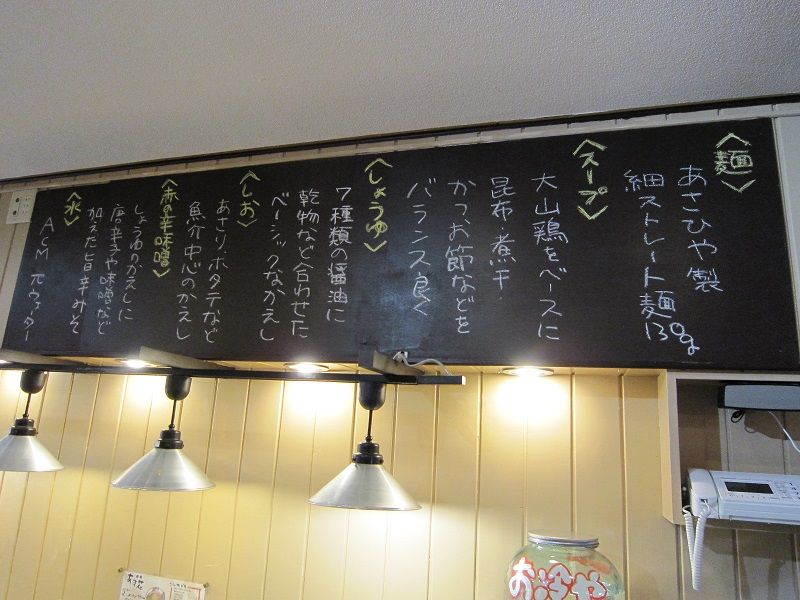 〈麺〉
あさひや製
細ストレート麺
130g
〈スープ〉
大山鶏をベースに
昆布・煮干・
かつお節などを
バランス良く
〈しょうゆ〉
7種類の醤油に
乾物など合わせた
ベーシックなかえし
〈しお〉
あさり・ホタテなど
魚介中心のかえし
〈赤の辛味噌〉
しょうゆのかえしに
唐辛子や味噌など
加えた旨辛みそ
〈水〉
ACM πウォーター
お冷や